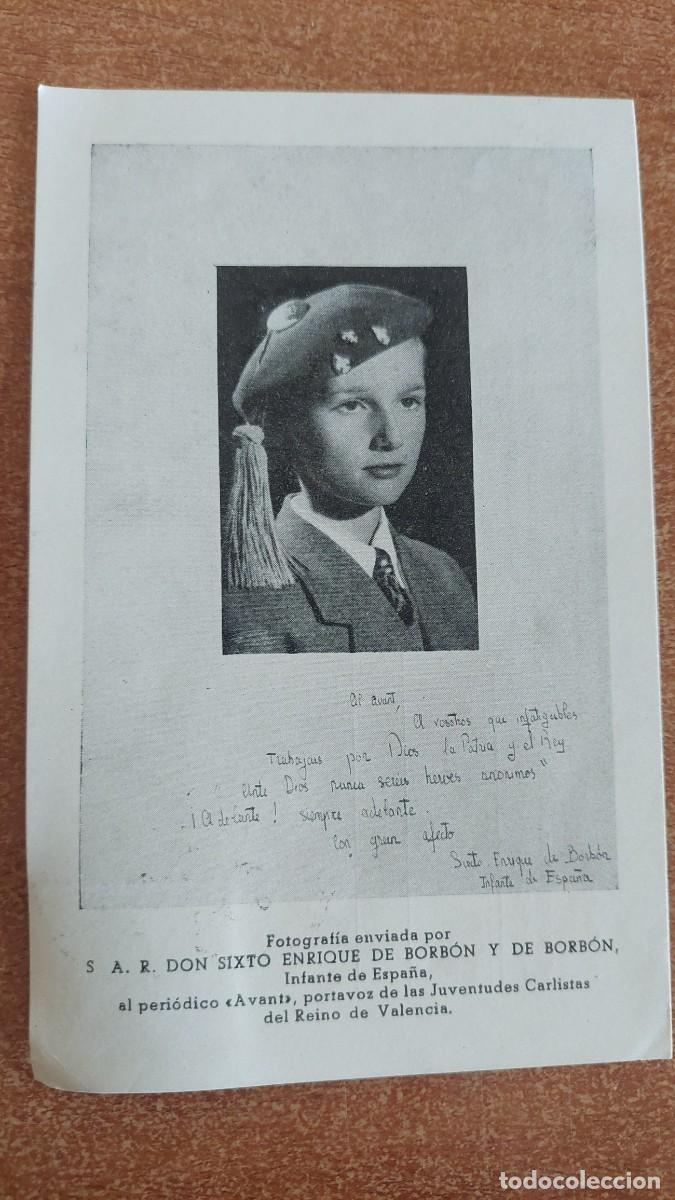 Al Avant,
A vosotros que infatigables
Trabajais por Dios la Patria y el Rey
"Ante Dios nunca sereis heroes anonimos"
¡Adelante! siempre adelante.
Con gran afecto
Sixto Enrique de Borbón
Infante de España
Fotografía enviada por
S A. R. DON SIXTO ENRIQUE DE BORBÓN Y DE BORBÓN,
Infante de España,
al periódico «Avant», portavoz de las Juventudes Carlistas
del Reino de Valencia.
todocoleccion